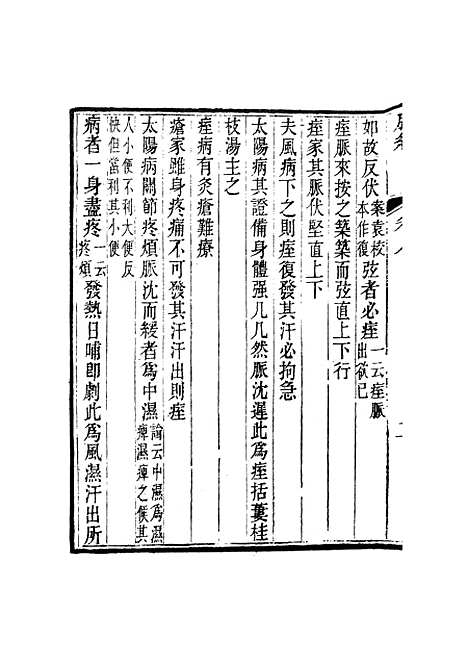 如故反伏案袁校本作復弦者必痙一云痙脈出欲已
痙脈來按之築築而弦直上下行
痙家其脈伏堅直上下
夫風病下之則痙復發其汗必拘急
太陽病其證備身體强几几然脈沈遲此爲痙括蔞桂
枝湯主之
痙病有灸瘡難療
瘡家雖身疼痛不可發其汗汗出則痙
太陽病關節疼煩脈沈而緩者爲中濕論云中濕爲濕痺濕痺之候其
人小便不利大便反快但當利其小便
病者一身盡疼一云疼煩發熱日晡卽劇此爲風濕汗出所